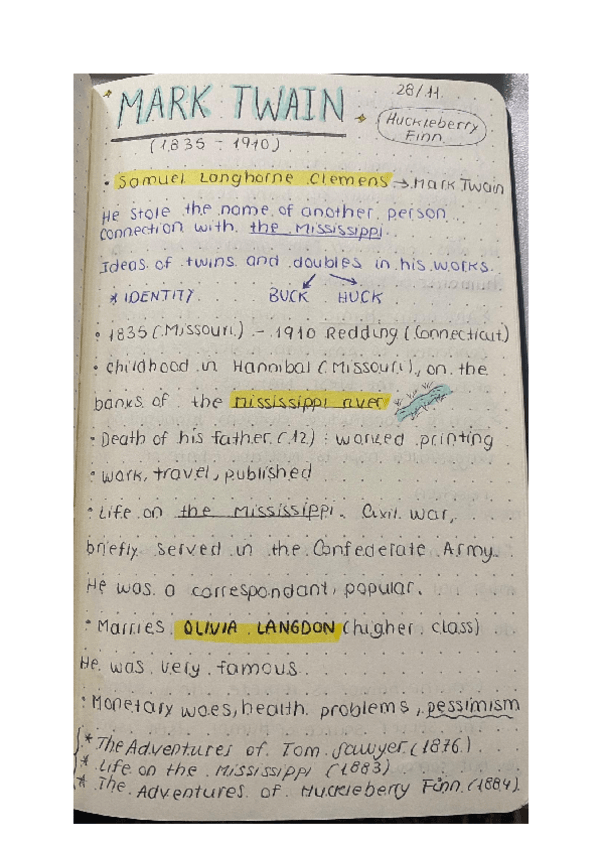 28/11
MARK TWAIN
Huckleberry
Finn
(1835 - 1910)
• Samuel Langhorne Clemens → Mark Twain
He stole the name of another person
connection with the Mississippi.
Ideas of twins and doubles in his works.
* IDENTITY BUCK HUCK
• 1835 (Missouri) - 1910 Redding (Connecticut)
• childhood in Hannibal (Missouri), on the
banks of the mississippi river
• Death of his father (12) : worked printing
• work, travel, published
• Life on the Mississippi. Civil war,
briefly served in the Confederate Army.
He was a correspondant, popular.
• Marries OLIVIA LANGDON (higher class)
He was very famous
• Monetary woes, health problems, pessimism
* The Adventures of Tom Sawyer (1876)
* Life on the Mississippi (1883)
* The Adventures of Huckleberry Finn (1884)